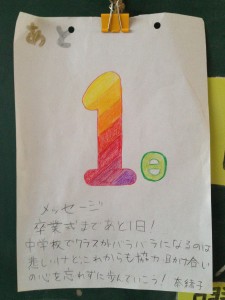 あと
1日
メッセージ
卒業式まであと1日!
中学校でクラスがバラバラになるのは
悲しいけど、これからも協力、助け合い
の心を忘れずに歩んでいこう!